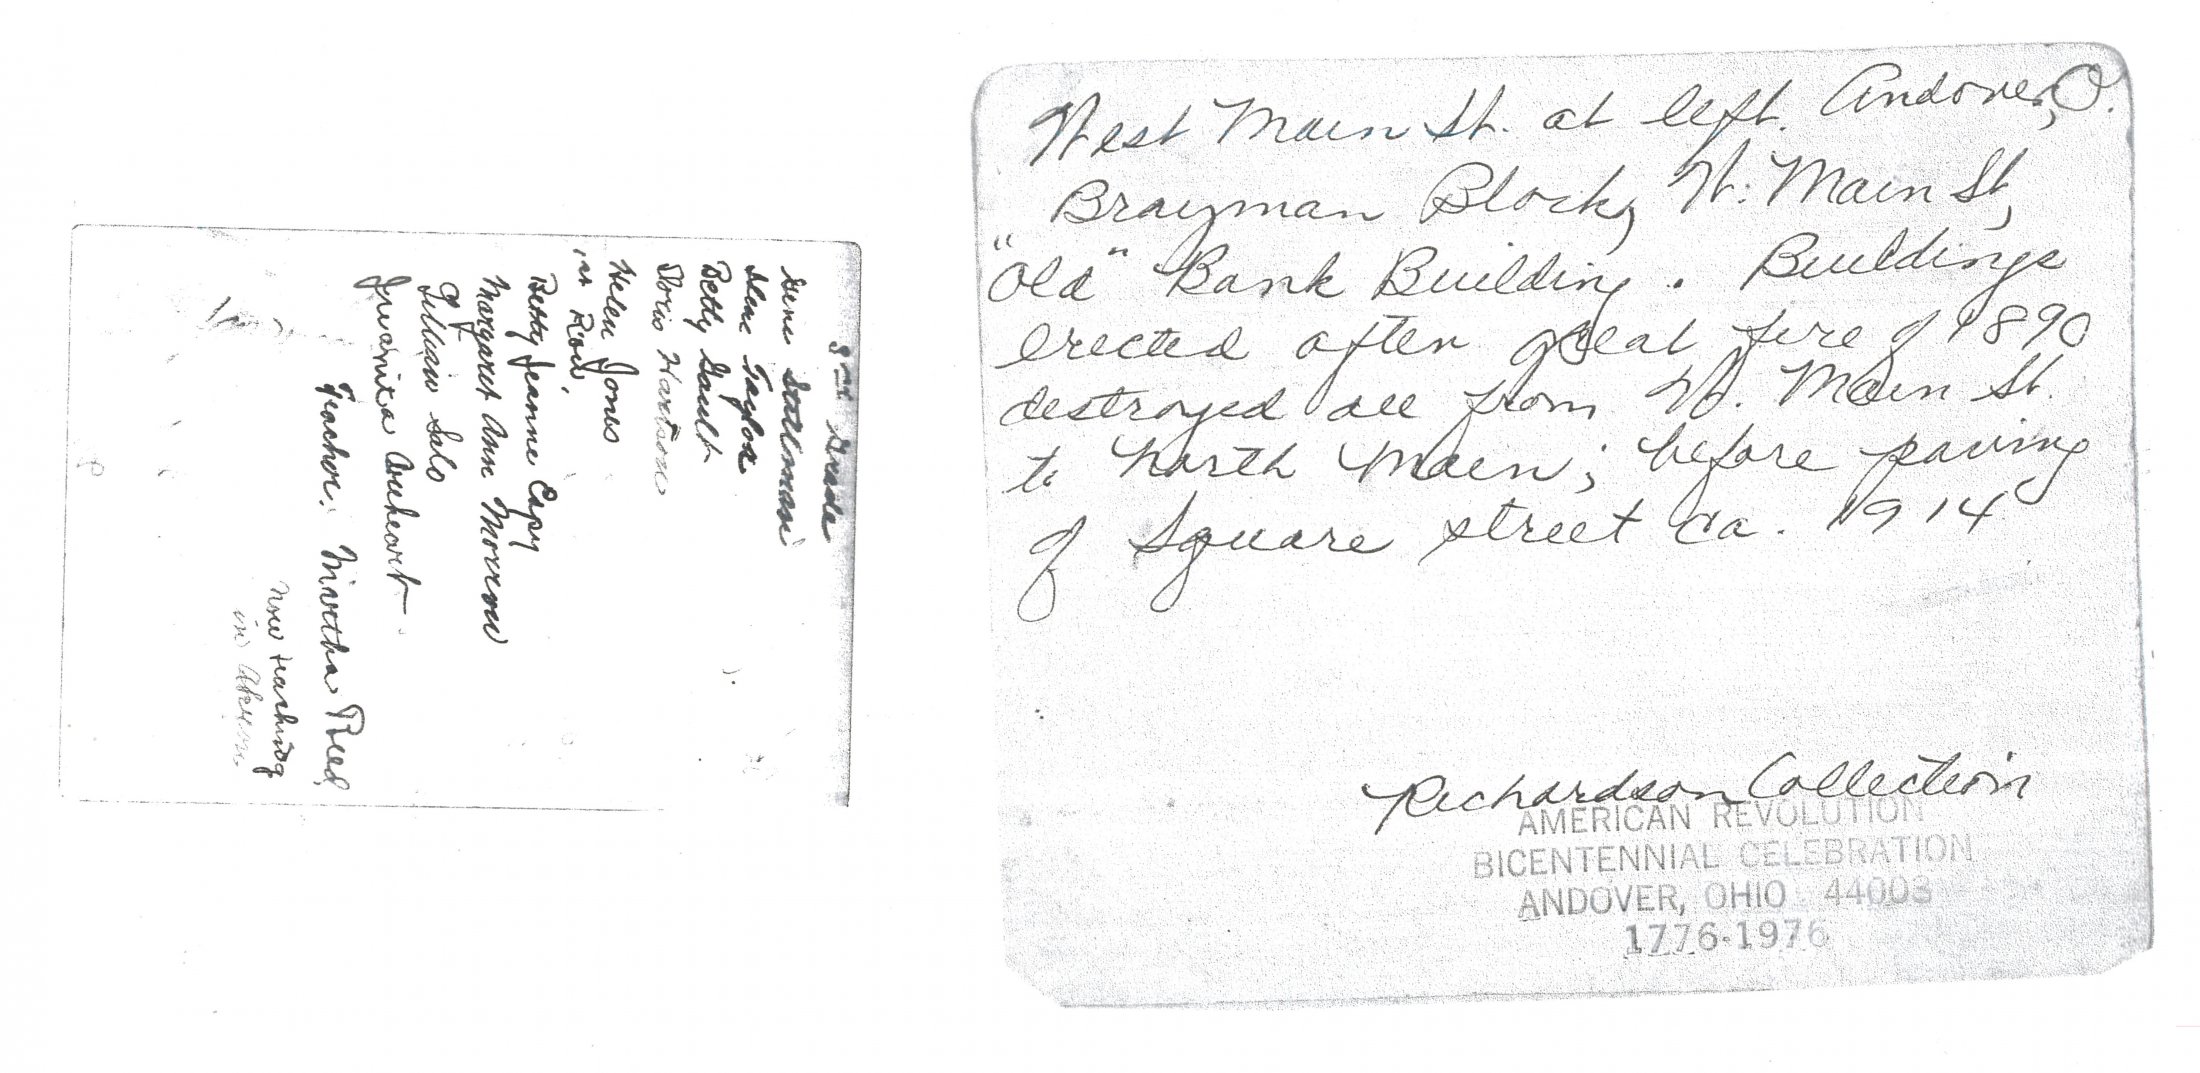 Grade
Gene Stillman
Ilene Taylor
Betty Gault
Doris Hartson
Helen Jones
1st Row.
Betty Jeanne Espy
Margaret Ann Morrow
Lillian Salo
Juanita
Teacher. Miartha Reed
now teaching
in Akron
West Main St. at left. Andover, O.
Brayman Block, W. Main St,
"Old" Bank Building. Buildings
erected after great fire of 1890
destroyed all from W. Main St.
to North Main; before paving
of Square street ca. 1914
Richardson Collection
AMERICAN REVOLUTION
BICENTENNIAL CELEBRATION
ANDOVER, OHIO 44003
1776-1976